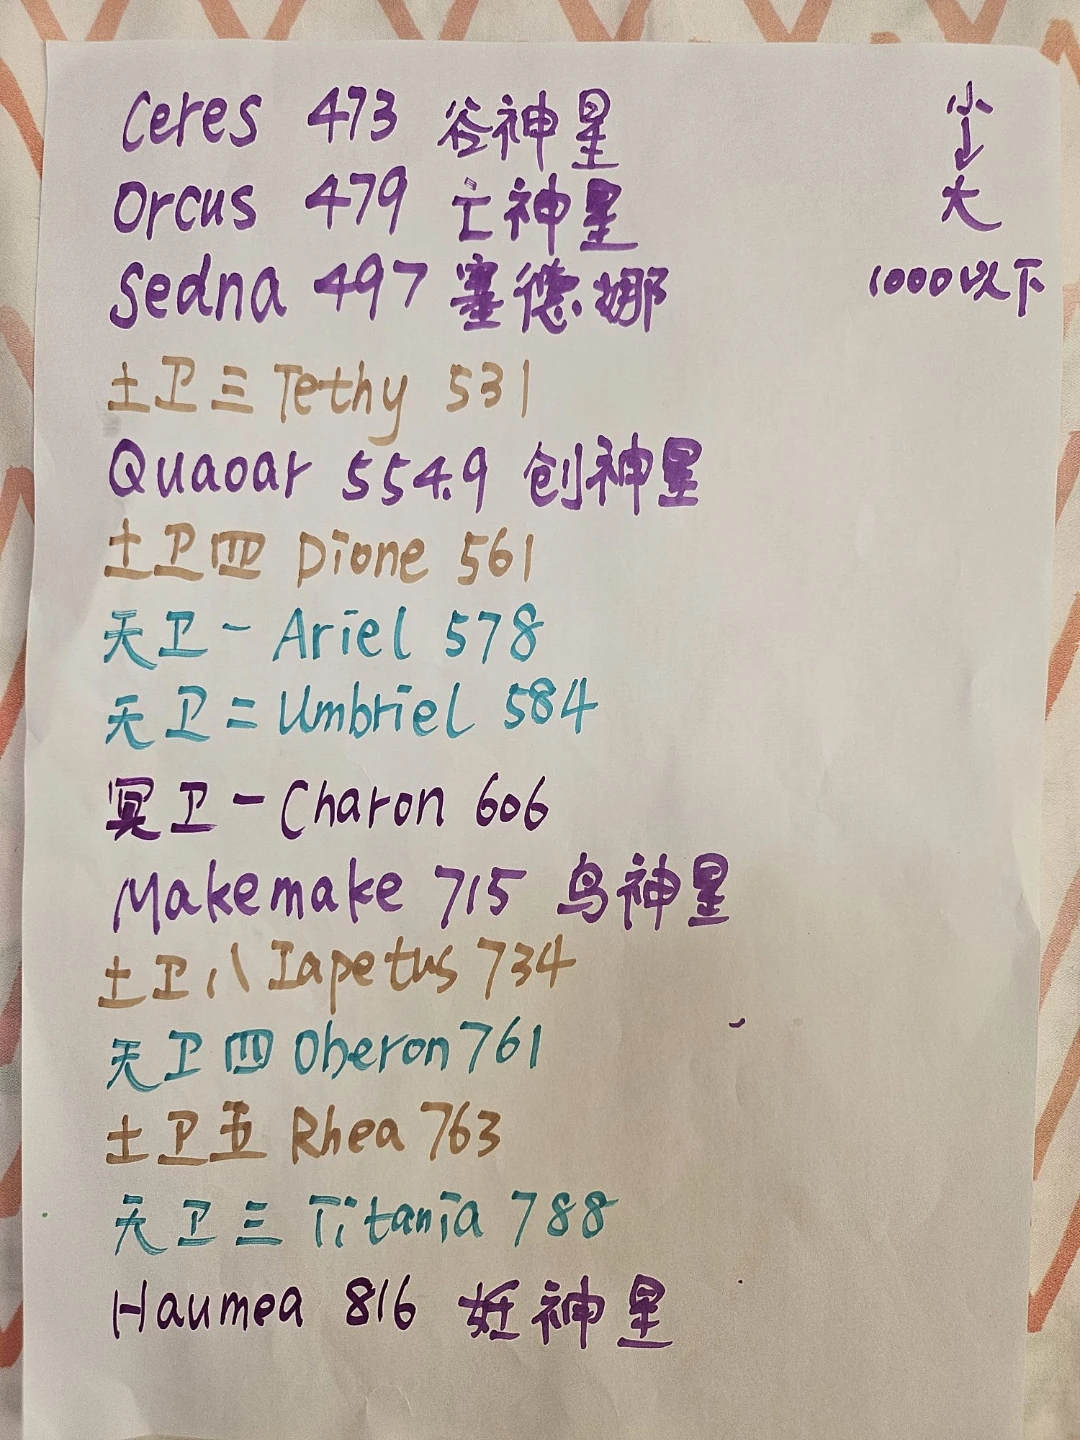 Ceres 473 谷神星
小
↓
大
Orcus 479 亡神星
Sedna 497 塞德娜
1000以下
土卫三 Tethy 531
Quaoar 554.9 创神星
土卫四 Dione 561
天卫一 Ariel 578
天卫二 Umbriel 584
冥卫一 Charon 606
Makemake 715 鸟神星
土卫八 Iapetus 734
天卫四 Oberon 761
土卫五 Rhea 763
天卫三 Titania 788
Haumea 816 妊神星